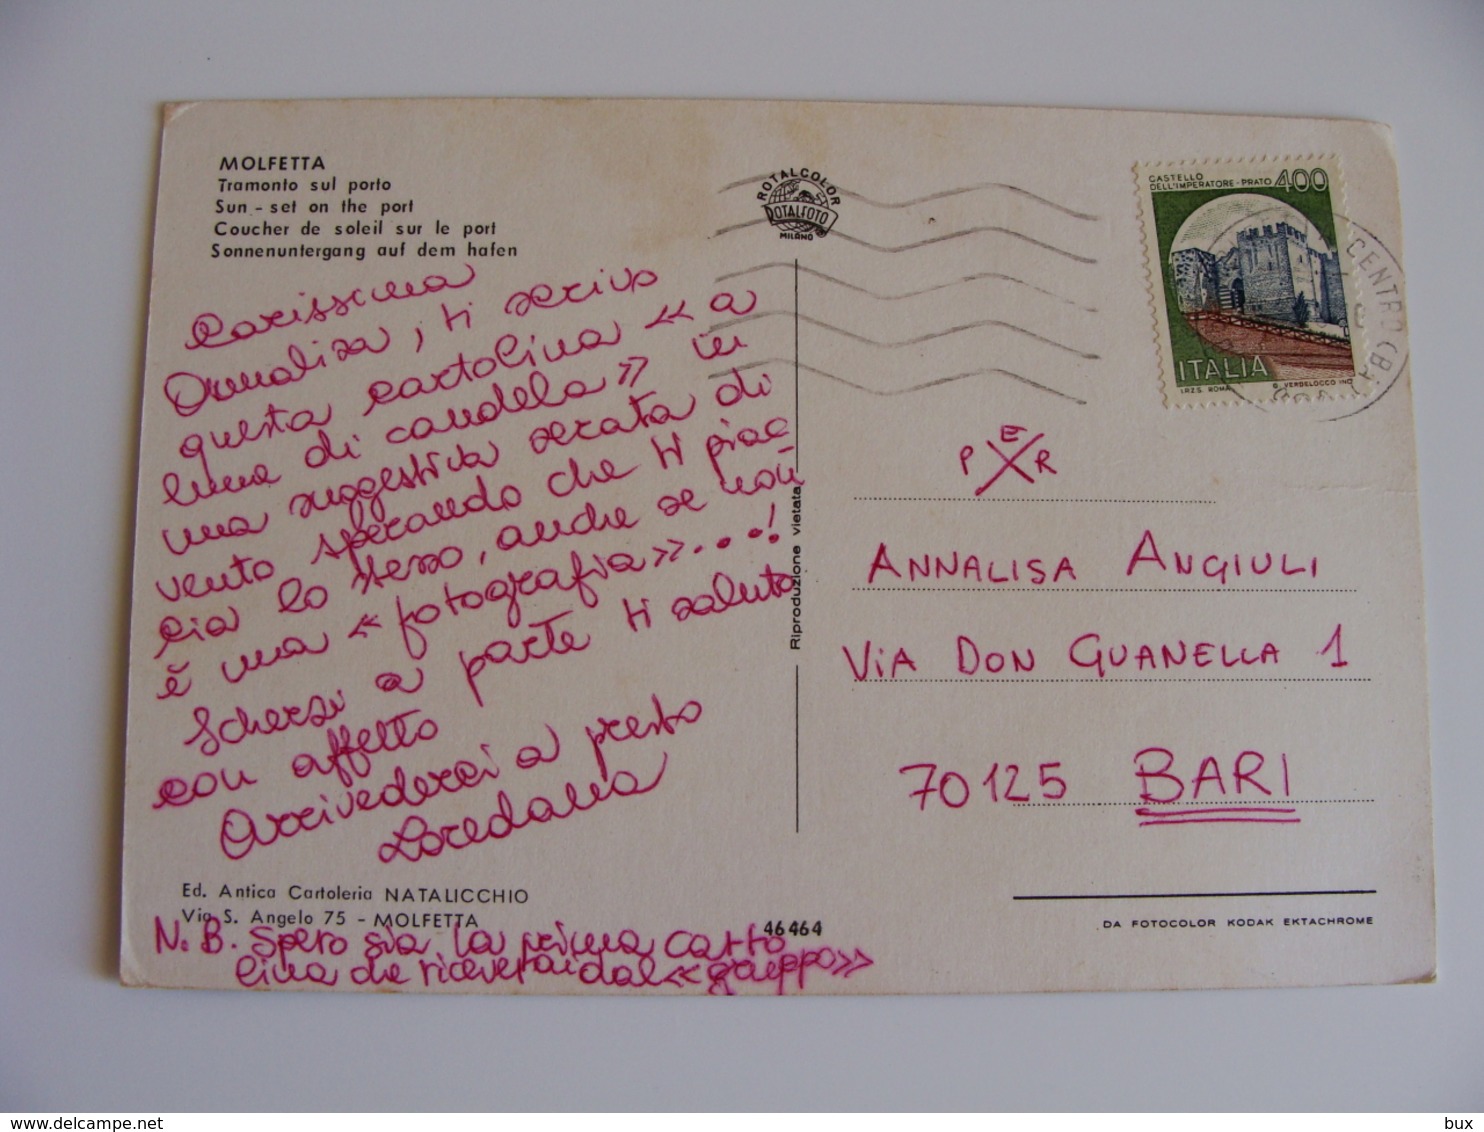 MOLFETTA
Tramonto sul porto
Sun - set on the port
Coucher de soleil sur le port
Sonnenuntergang auf dem hafen
Carissima
Annalisa, ti scrivo
questa cartolina « a
lume di candela» in
una suggestiva serata di
vento sperando che ti piac
cia lo stesso, anche se non
è una « fotografia»...!
Scherzi a parte ti saluto
con affetto
Arrivederci a presto
Loredana
Ed. Antica Cartoleria NATALICCHIO
Via S. Angelo 75 - MOLFETTA
N.B. Spero sia la prima carto
lina che riceverai dal «gruppo»
46464
ROTALCOLOR
ROTALFOTO
MILANO
Riproduzione vietata
CASTELLO
DELL'IMPERATORE - PRATO 400
ITALIA
I.P.Z.S. ROMA E. VERDELOCCO INC.
CENTRO (BA)
P E R
ANNALISA ANGIULI
VIA DON GUANELLA 1
70125 BARI
DA FOTOCOLOR KODAK EKTACHROME
www.delcampe.net
bux